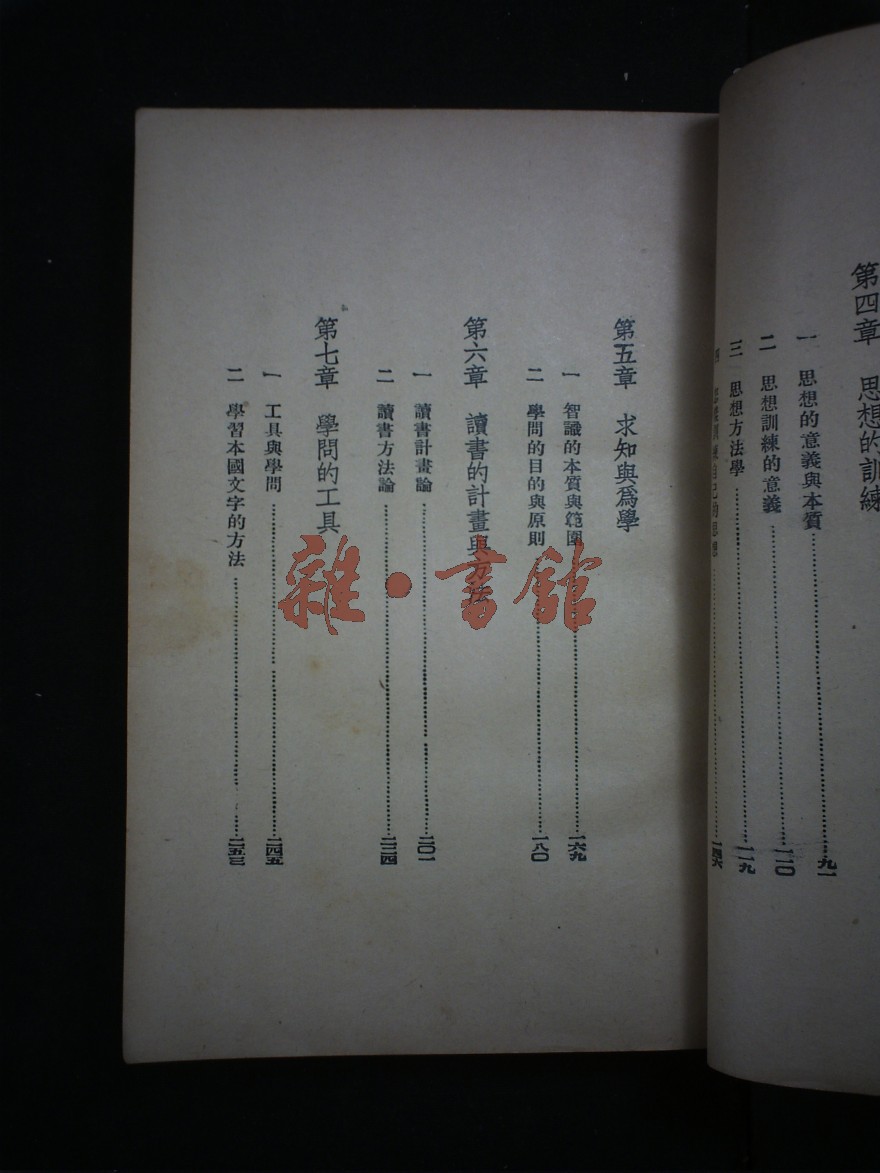 第四章 思想的訓練
一 思想的意義與本質……九一
二 思想訓練的意義……一一〇
三 思想方法學……一一九
四 訓練自己的思想……一四六
第五章 求知與爲學
一 智識的本質與範圍……一六九
二 學問的目的與原則……一八〇
第六章 讀書的計畫與方法
一 讀書計畫論……二〇一
二 讀書方法論……二二四
第七章 學問的工具
一 工具與學問……二四五
二 學習本國文字的方法……二五三
雜·書館